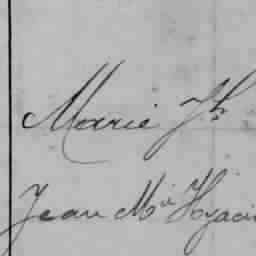 Marie Jh
Jean Mie Hyacin